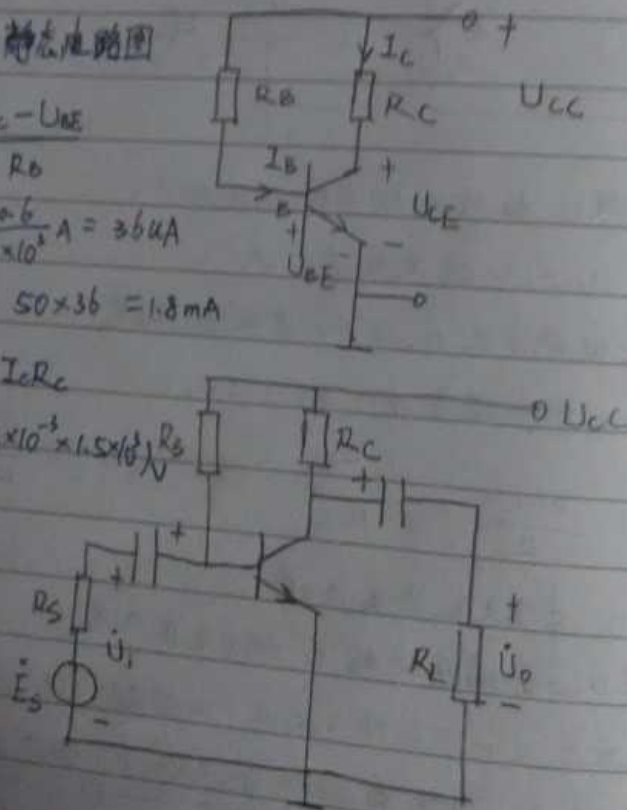 静态电路图
- U_BE
R_B
0.6
×10³ A = 36uA
50×36 = 1.8mA
I_C R_C
×10⁻³×1.5×10³)V
I_C
+
R_B
R_C
U_CC
I_B
+
B
U_CE
+
-
-
U_BE
U_CC
R_B
R_C
+
+
+
R_S
U̇_i
+
R_L
U̇_o
Ė_S
-
-